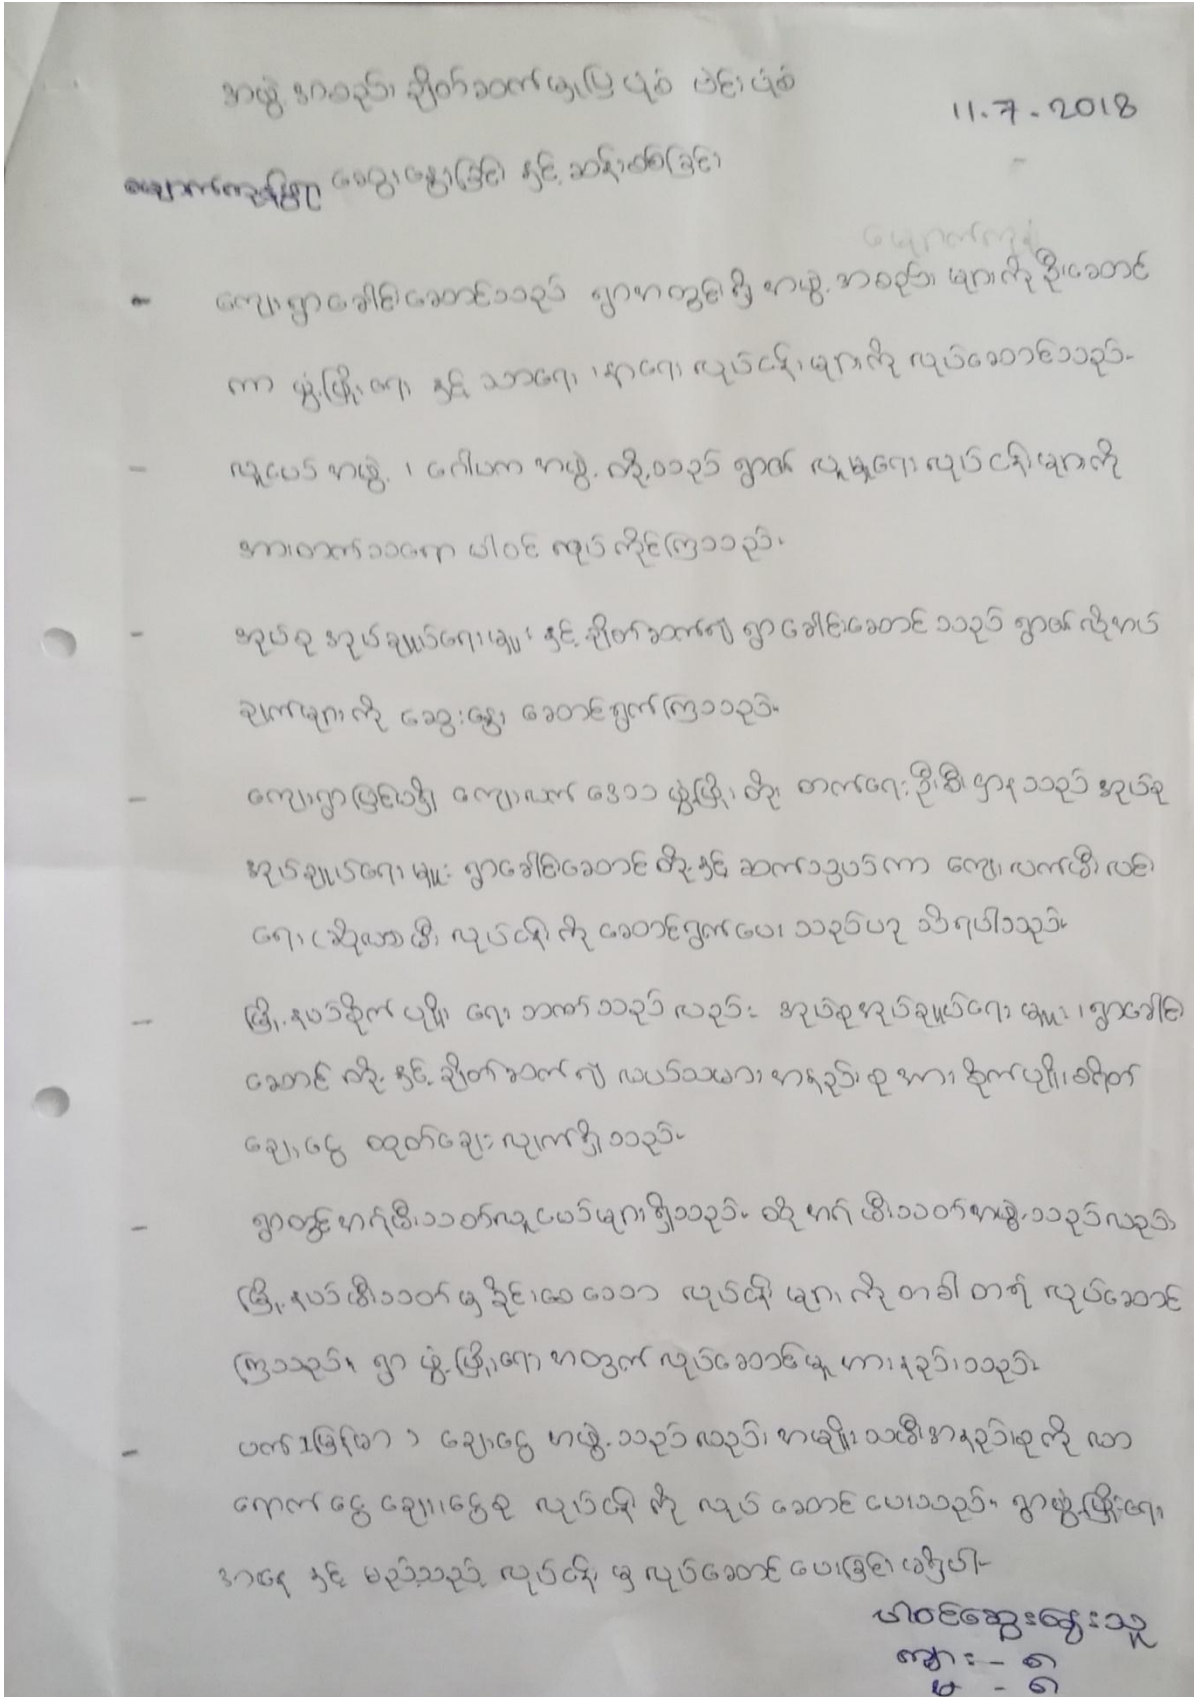 အဖွဲ့အစည်း ချိတ်ဆက်မှုပြ ပုံစံ ဗဲင်းပုံစံ
11.7.2018
ဆွေးနွေးခြင်း နှင့် ဆန်းစစ်ခြင်း
မျောက်ကုန်း
- ကျေးရွာခေါင်းဆောင်သည် ရွာအတွင်းရှိ အဖွဲ့အစည်း များကို ဦးဆောင်
ကာ ဖွံ့ဖြိုးရေး နှင့် သာရေး ၊ နာရေး လုပ်ငန်းများကို လုပ်ဆောင်သည်။
- လူငယ်အဖွဲ့ ၊ ဂေါပကအဖွဲ့ တို့သည် ရွာ၏ လူမှုရေးလုပ်ငန်းများကို
အားတက်သရော ပါဝင် လုပ်ကိုင်ကြသည်။
- အုပ်စု အုပ်ချုပ်ရေးမှူး နှင့် ချိတ်ဆက်၍ ရွာခေါင်းဆောင်သည် ရွာ၏ လိုအပ်
ချက်များကို ဆွေးနွေး ဆောင်ရွက်ကြသည်။
- ကျေးရွာပြင်ပရှိ ကျေးလက် ဒေသ ဖွံ့ဖြိုး တိုးတက်ရေး ဦးစီးဌာနသည် အုပ်စု
အုပ်ချုပ်ရေးမှူး ရွာခေါင်းဆောင် တို့နှင့် ဆက်သွယ်ကာ ကျေးလက်မီးလင်း
ရေး (ဆိုလာမီး) လုပ်ငန်းကို ဆောင်ရွက်ပေး သည်ဟု သိရပါသည်။
- မြို့နယ်စိုက်ပျိုးရေး ဘဏ်သည်လည်း အုပ်စုအုပ်ချုပ်ရေးမှူး ၊ ရွာခေါင်း
ဆောင် တို့နှင့် ချိတ်ဆက်၍ လယ်သမား အနည်းစုအား စိုက်ပျိုးစရိတ်
ချေးငွေ ထုတ်ချေးလျက်ရှိသည်။
- ရွာတွင်အရံမီးသတ်လူငယ်များရှိသည်။ ထိုအရံမီးသတ်အဖွဲ့သည်လည်း
မြို့နယ်မီးသတ်မှ ခိုင်းစေသော လုပ်ငန်းများကို တခါတရံ လုပ်ဆောင်
ကြသည်။ ရွာဖွံ့ဖြိုးရေးအတွက်လုပ်ဆောင်မှု အားနည်းသည်။
- ပက်(မြန်မာ) ချေးငွေအဖွဲ့သည်လည်း အမျိုးသမီးအနည်းစုကို လာ
ရောက် ငွေချေး၊ ငွေစု လုပ်ငန်းကို လုပ်ဆောင်ပေးသည်။ ရွာဖွံ့ဖြိုးရေး
အနေ နှင့် မည်သည့် လုပ်ငန်းမှ လုပ်ဆောင်ပေးခြင်း မရှိပါ။
ပါဝင်ဆွေးနွေးသူ
ကျား - ၅
မ - ၅